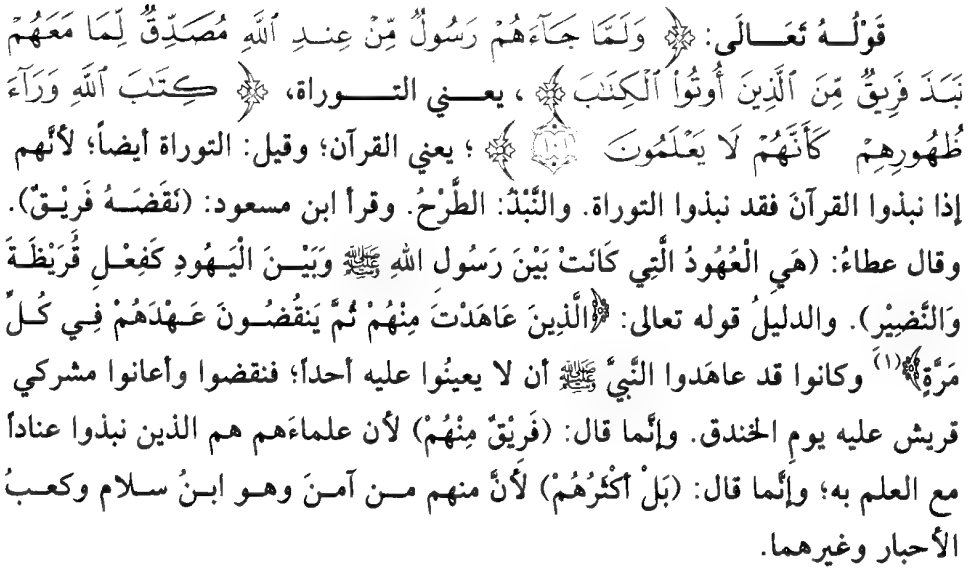 قَوْلُـهُ تَعَـالَى: ﴿ وَلَمَّا جَآءَهُمْ رَسُولٌ مِّنْ عِندِ ٱللَّهِ مُصَدِّقٌ لِّمَا مَعَهُمْ
نَبَذَ فَرِيقٌ مِّنَ ٱلَّذِينَ أُوتُوا۟ ٱلْكِتَـٰبَ ﴾، يعـني التـوراة، ﴿ كِتَـٰبَ ٱللَّهِ وَرَآءَ
ظُهُورِهِمْ كَأَنَّهُمْ لَا يَعْلَمُونَ ١٠١ ﴾؛ يعني القرآن؛ وقيل: التوراة أيضاً؛ لأنَّهم
إذا نبذوا القرآنَ فقد نبذوا التوراة. والنَّبْذُ: الطَّرْحُ. وقرأ ابن مسعود: (نَقَضَـهُ فَرِيْـقٌ).
وقال عطاءُ: (هَيَ الْعُهُودُ الَّتِي كَانَتْ بَيْنَ رَسُولِ اللهِ ﷺ وَبَيْـنَ الْيَهُودِ كَفِعْـلِ قُرَيْظَـةَ
وَالنَّضِيْر). والدليلُ قوله تعالى: ﴿الَّذِينَ عَاهَدْتَ مِنْهُمْ ثُمَّ يَنقُضُـونَ عَـهْدَهُمْ فِـي كُـلِّ
مَرَّةٍ﴾(١) وكانوا قد عاهَدوا النَّبيَّ ﷺ أن لا يعينُوا عليه أحداً؛ فنقضوا وأعانوا مشركي
قريش عليه يومِ الخندق. وإنَّما قال: (فَرِيْقٌ مِنْهُمْ) لأن علماءَهم هم الذين نبذوا عناداً
مع العلم به؛ وإنَّما قال: (بَلْ أَكْثَرُهُمْ) لأنَّ منهم مـن آمـنَ وهـو ابـنُ سـلام وكعـبُ
الأحبار وغيرهما.